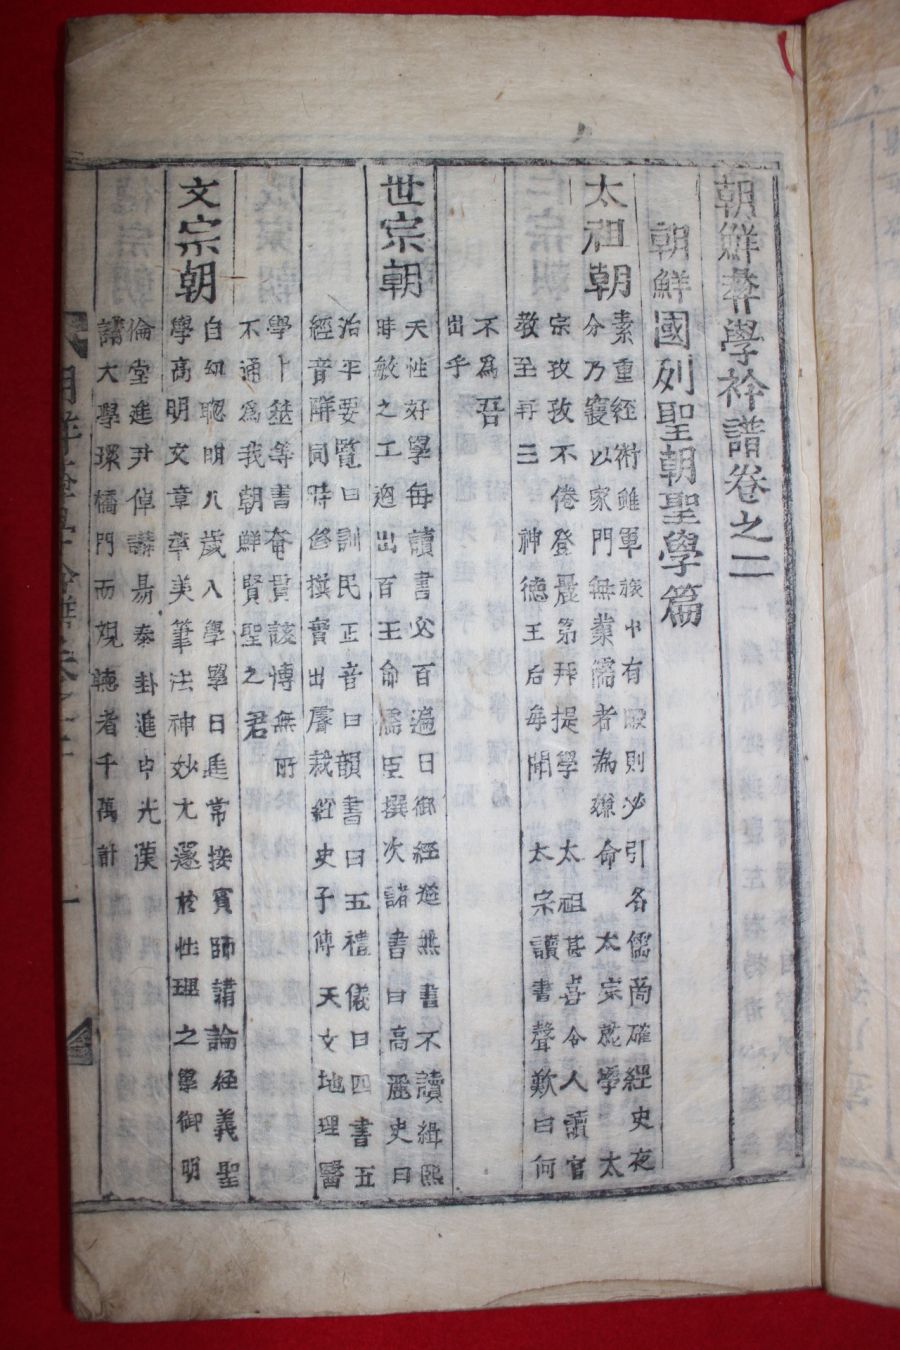 朝鮮彝學衿譜卷之二
朝鮮國列聖朝聖學篇
太祖朝
素重經術雖軍旅中有暇則必引名儒商確經史夜
分乃寢以家門無業儒者為嫌命 太宗就學太
宗孜孜不倦登第拜提學 太祖甚喜令人讀官
教至再三 神德王后每聞 太宗讀書聲歎曰何
不為吾
出乎
世宗朝
天性好學每讀書必百遍日御經筵無書不讀緝熙
時敏之工逈出百王命儒臣撰次諸書曰高麗史曰
治平要覽曰訓民正音曰韻書曰五禮儀曰四書五
經音解同時修撰實出睿裁經史子傳 天文地理醫
學卜筮等書奄貫該博無所
不通為我朝鮮賢聖之君
文宗朝
自幼聰明八歲入學學日進常接賓師講論經義聖
學高明文章華美筆法神妙尤邃於性理之學御明
倫堂進尹倬講易泰卦進申光漢
講大學環橋門而觀聽者千萬計